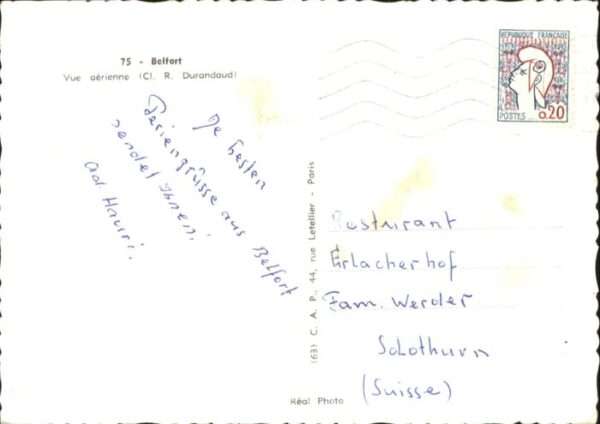 75 - Belfort
Vue aérienne (Cl. R. Durandaud)
Je besten
Feriengrüsse aus Belfort
sendet Ihnen:
Ad. Hauri.
(63) C. A. P., 44, rue Letellier - Paris
REPUBLIQUE FRANÇAISE
POSTES
0,20
Restaurant
Erlacherhof
Fam. Werder
Solothurn
(Suisse)
Réal Photo